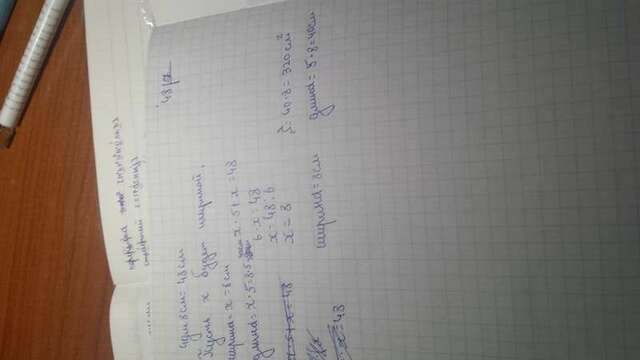 48
4дм 8см = 48 см
Пусть x будет шириной.
ширина = x = 8 см
длина = x · 5 = 8 · 5
x · 5 + x = 48
6 · x = 48
x = 48 : 6
x = 8
x · 5 + x = 48
· x = 48
ширина = 8 см
S = 40 · 8 = 320 см²
длина = 5 · 8 = 40 см